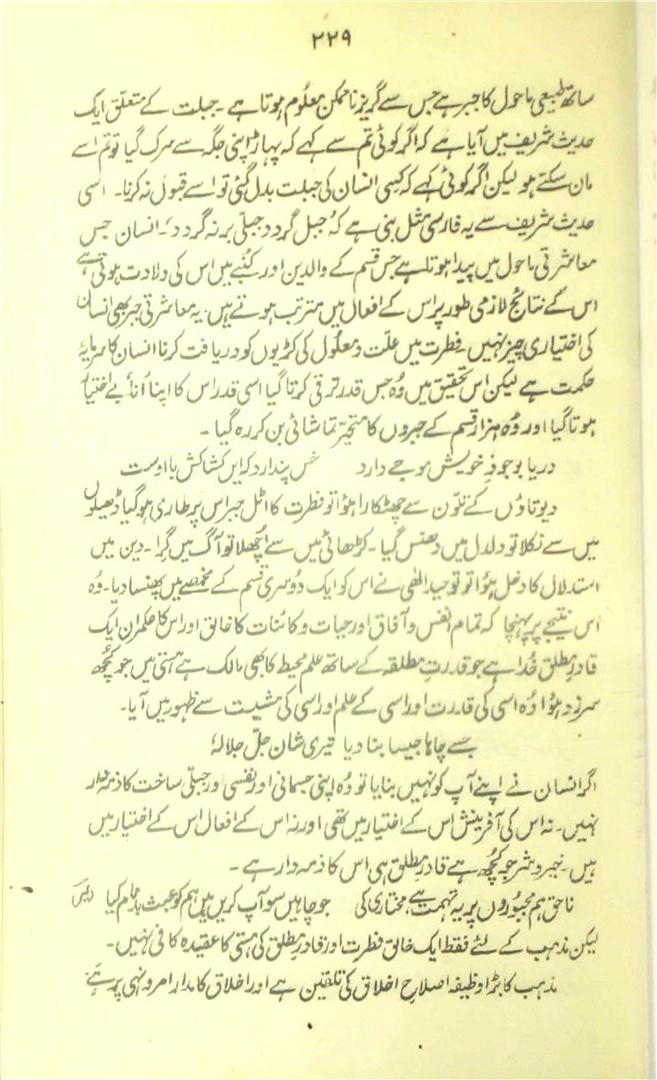 ۲۲۹
ساتھ طبیعی ماحول کا جبر ہے جس سے گریز ناممکن معلوم ہوتا ہے۔ جبلت کے متعلق ایک
حدیث شریف میں آیا ہے کہ اگر کوئی تم سے کہے کہ پہاڑ اپنی جگہ سے سرک گیا تو تم اسے
مان سکتے ہو لیکن اگر کوئی کہے کہ کسی انسان کی جبلت بدل گئی تو اسے قبول نہ کرنا۔ اسی
حدیث شریف سے یہ فارسی مثل بنی ہے کہ ’جبل گردد جبلی بر نہ گردد‘۔ انسان جس
معاشرتی ماحول میں پیدا ہوتا ہے جس قسم کے والدین اور کنبے میں اس کی ولادت ہوتی ہے
اس کے نتائج لازمی طور پر اس کے افعال میں مترتب ہوتے ہیں۔ یہ معاشرتی جبر بھی انسان
کی اختیاری چیز نہیں۔ فطرت میں علّت و معلول کی کڑیوں کو دریافت کرنا انسان کا سرمایۂ
حکمت ہے لیکن اس تحقیق میں وُہ جس قدر ترقی کرتا گیا اسی قدر اس کا اپنا ’انا‘ بے اختیار
ہوتا گیا اور وُہ ہزار قسم کے جبروں کا متحیّر تماشائی بن کر رہ گیا۔
دریا بوجودِ خویش موجے دارد خس پندارد کہ ایں کشاکش با اوست
دیوتاؤں کے تلوّن سے چھٹکارا ہؤا تو فطرت کا اٹل جبر اس پر طاری ہو گیا ڈھیلوں
میں سے نکلا تو دلدل میں دھنس گیا۔ کڑھائی میں سے اُچھلا تو آگ میں گِرا۔ دین میں
استدلال کا دخل ہؤا تو توحیدِ الٰھی نے اس کو ایک دُوسری قسم کے مخمصے میں پھنسا دیا۔ وُہ
اس نتیجے پر پہنچا کہ تمام انفس و آفاق اور حیات و کائنات کا خالق اور اس کا حکمران ایک
قادرِ مطلق خُدا ہے جو قدرتِ مطلقہ کے ساتھ علمِ محیط کا بھی مالک ہے ہستی میں جو کُچھ
سرزد ہؤا وُہ اسی کی قدرت اور اسی کے علم اور اسی کی مشیت سے ظہور میں آیا۔
جسے چاہا جیسا بنا دیا تیری شان جلّ جلالہٗ
اگر انسان نے اپنے آپ کو نہیں بنایا تو وُہ اپنی جسمانی اور نفسی ور جبلتی ساخت کا ذمّہ دار
نہیں۔ نہ اس کی آفرینش اس کے اختیار میں تھی اور نہ اس کے افعال اس کے اختیار میں
ہیں۔ خیر و شر جو کُچھ ہے قادرِ مطلق ہی اس کا ذمّہ دار ہے۔
ناحق ہم مجبوروں پر یہ تہمت ہے مختاری کی جو چاہیں سو آپ کریں ہیں ہم کو عبث بدنام کیا (میر)
لیکن مذہب کے لئے فقط ایک خالقِ فطرت اور قادرِ مطلق کی ہستی کا عقیدہ کافی نہیں۔
مذہب کا بڑا وظیفہ اصلاحِ اخلاق کی تلقین ہے اور اخلاق کا مدار امر و نہی پر ہے